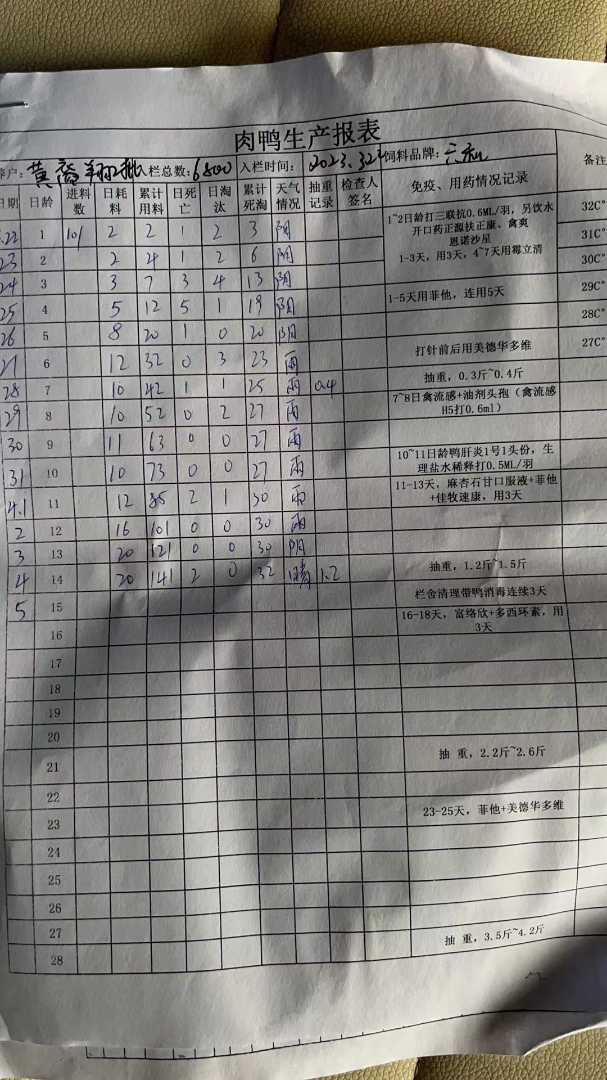 肉鸭生产报表
养户: 黄 翔 批 入栏总数: 6800 入栏时间: 2023.3.22 饲料品牌: 六和
日期 日龄 进料数 日耗料 累计用料 日死亡 日淘汰 累计死淘 天气情况 抽重记录 检查人签名 免疫、用药情况记录 备注
.22 1 101 2 2 2 3 阴 1~2日龄打三联抗0.6ML/羽，另饮水 32C°
开口药正源扶正康、禽爽
恩诺沙星
1-3天，用3天，4~7天用霉立清
23 2 2 4 1 2 6 阴 31C°
24 3 3 7 3 4 13 阴 30C°
25 4 5 12 5 1 19 阴 1-5天用菲他，连用5天 29C°
26 5 8 20 1 0 20 阴 28C°
27 6 12 32 0 3 23 雨 打针前后用美德华多维 27C°
28 7 10 42 1 1 25 雨 0.4 抽重，0.3斤~0.4斤
29 8 10 52 0 2 27 雨 7~8日禽流感+油剂头孢（禽流感
H5打0.6ml）
30 9 11 63 0 0 27 雨
31 10 10 73 0 0 27 雨 10~11日龄鸭肝炎1号1头份，生
理盐水稀释打0.5ML/羽
4.1 11 12 85 2 1 30 雨 11-13天，麻杏石甘口服液+菲他
+佳牧速康，用3天
2 12 16 101 0 0 30 雨
3 13 20 121 0 0 30 阴
4 14 20 141 2 0 32 晴 1.2 抽重，1.2斤~1.5斤
5 15 栏舍清理带鸭消毒连续3天
16 16-18天，富络欣+多西环素，用
3天
17
18
19
20
21 抽 重，2.2斤~2.6斤
22
23 23-25天，菲他+美德华多维
24
25
26
27
28 抽 重，3.5斤~4.2斤